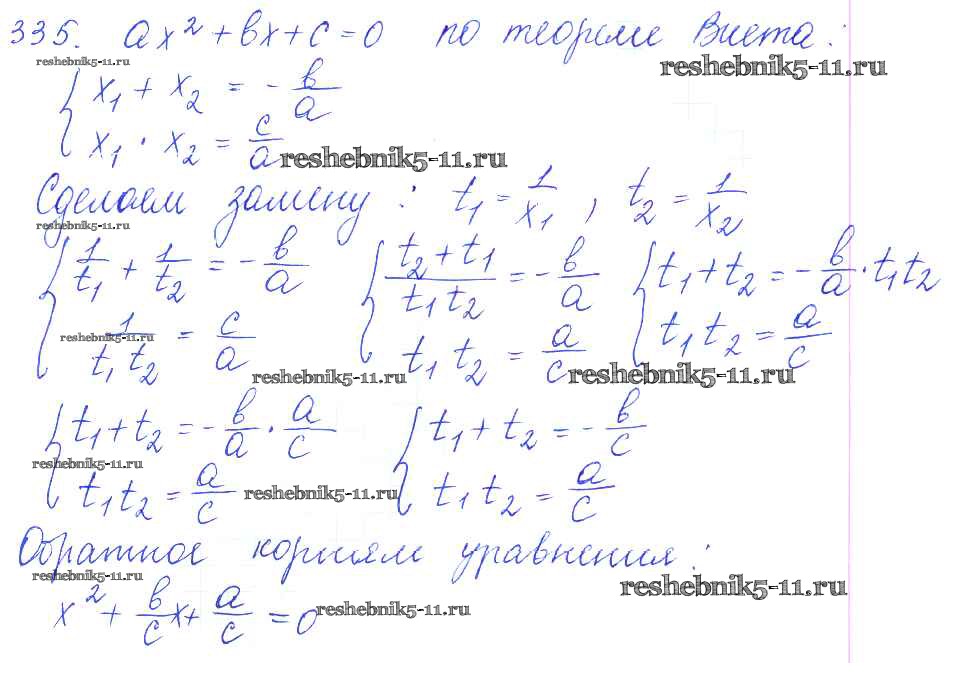 335. ax² + bx + c = 0 по теореме Виета:
reshebnik5-11.ru reshebnik5-11.ru
{ x₁ + x₂ = - b/a
x₁ · x₂ = c/a reshebnik5-11.ru
Сделаем замену: t₁ = 1/x₁, t₂ = 1/x₂
reshebnik5-11.ru
{ 1/t₁ + 1/t₂ = - b/a { (t₂ + t₁)/(t₁ t₂) = - b/a { t₁ + t₂ = - b/a · t₁ t₂
reshebnik5-11.ru
1/(t₁ t₂) = c/a t₁ t₂ = a/c t₁ t₂ = a/c
reshebnik5-11.ru reshebnik5-11.ru
{ t₁ + t₂ = - b/a · a/c { t₁ + t₂ = - b/c
reshebnik5-11.ru
t₁ t₂ = a/c reshebnik5-11.ru t₁ t₂ = a/c
Обратное корням уравнения:
reshebnik5-11.ru reshebnik5-11.ru
x² + b/c x + a/c = 0 reshebnik5-11.ru